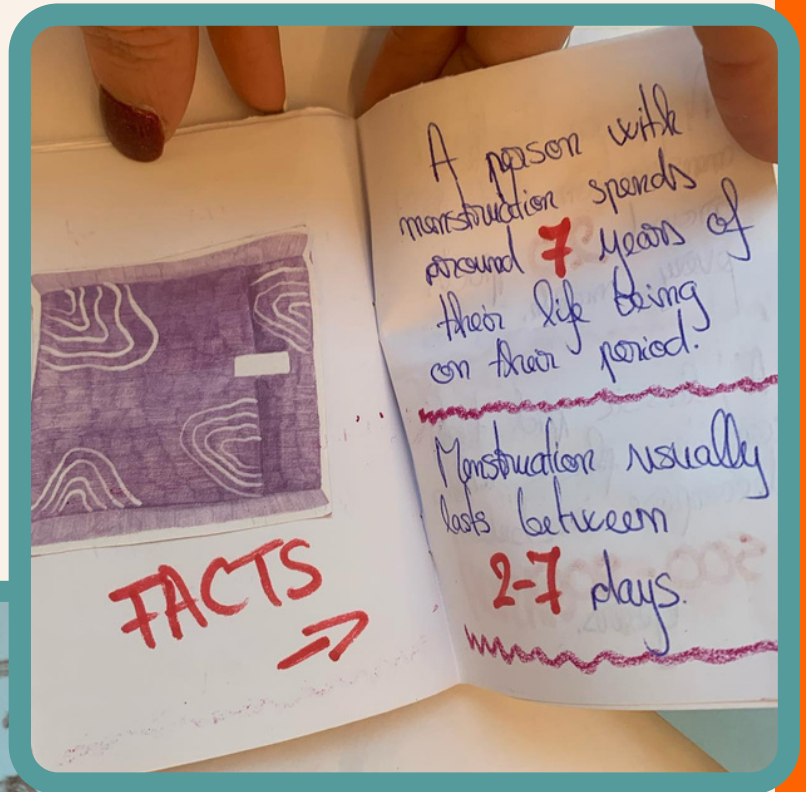 FACTS
A person with
menstruation spends
around 7 years of
their life being
on their period.
Menstruation usually
lasts between
2-7 days.